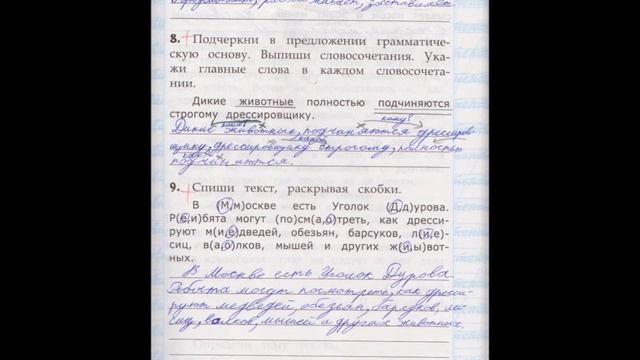 заставляет
8. Подчеркни в предложении грамматиче-
скую основу. Выпиши словосочетания. Ука-
жи главные слова в каждом словосочета-
нии.
Дикие животные полностью подчиняются
строгому дрессировщику.
какие? кому?
Дикие животные, подчиняются дрессиров-
щику, дрессировщику строгому, полностью
подчиняются.
9. Спиши текст, раскрывая скобки.
В (М,м)оскве есть Уголок (Д,д)урова.
Р(е,и)бята могут (по)см(а,о)треть, как дресси-
руют м(и,е)дведей, обезьян, барсуков, л(и,е)-
сиц, в(а,о)лков, мышей и других ж(и,ы)вот-
ных.
В Москве есть Уголок Дурова.
Ребята могут посмотреть, как дресси-
руют медведей, обезьян, барсуков, ли-
сиц, волков, мышей и других животных.